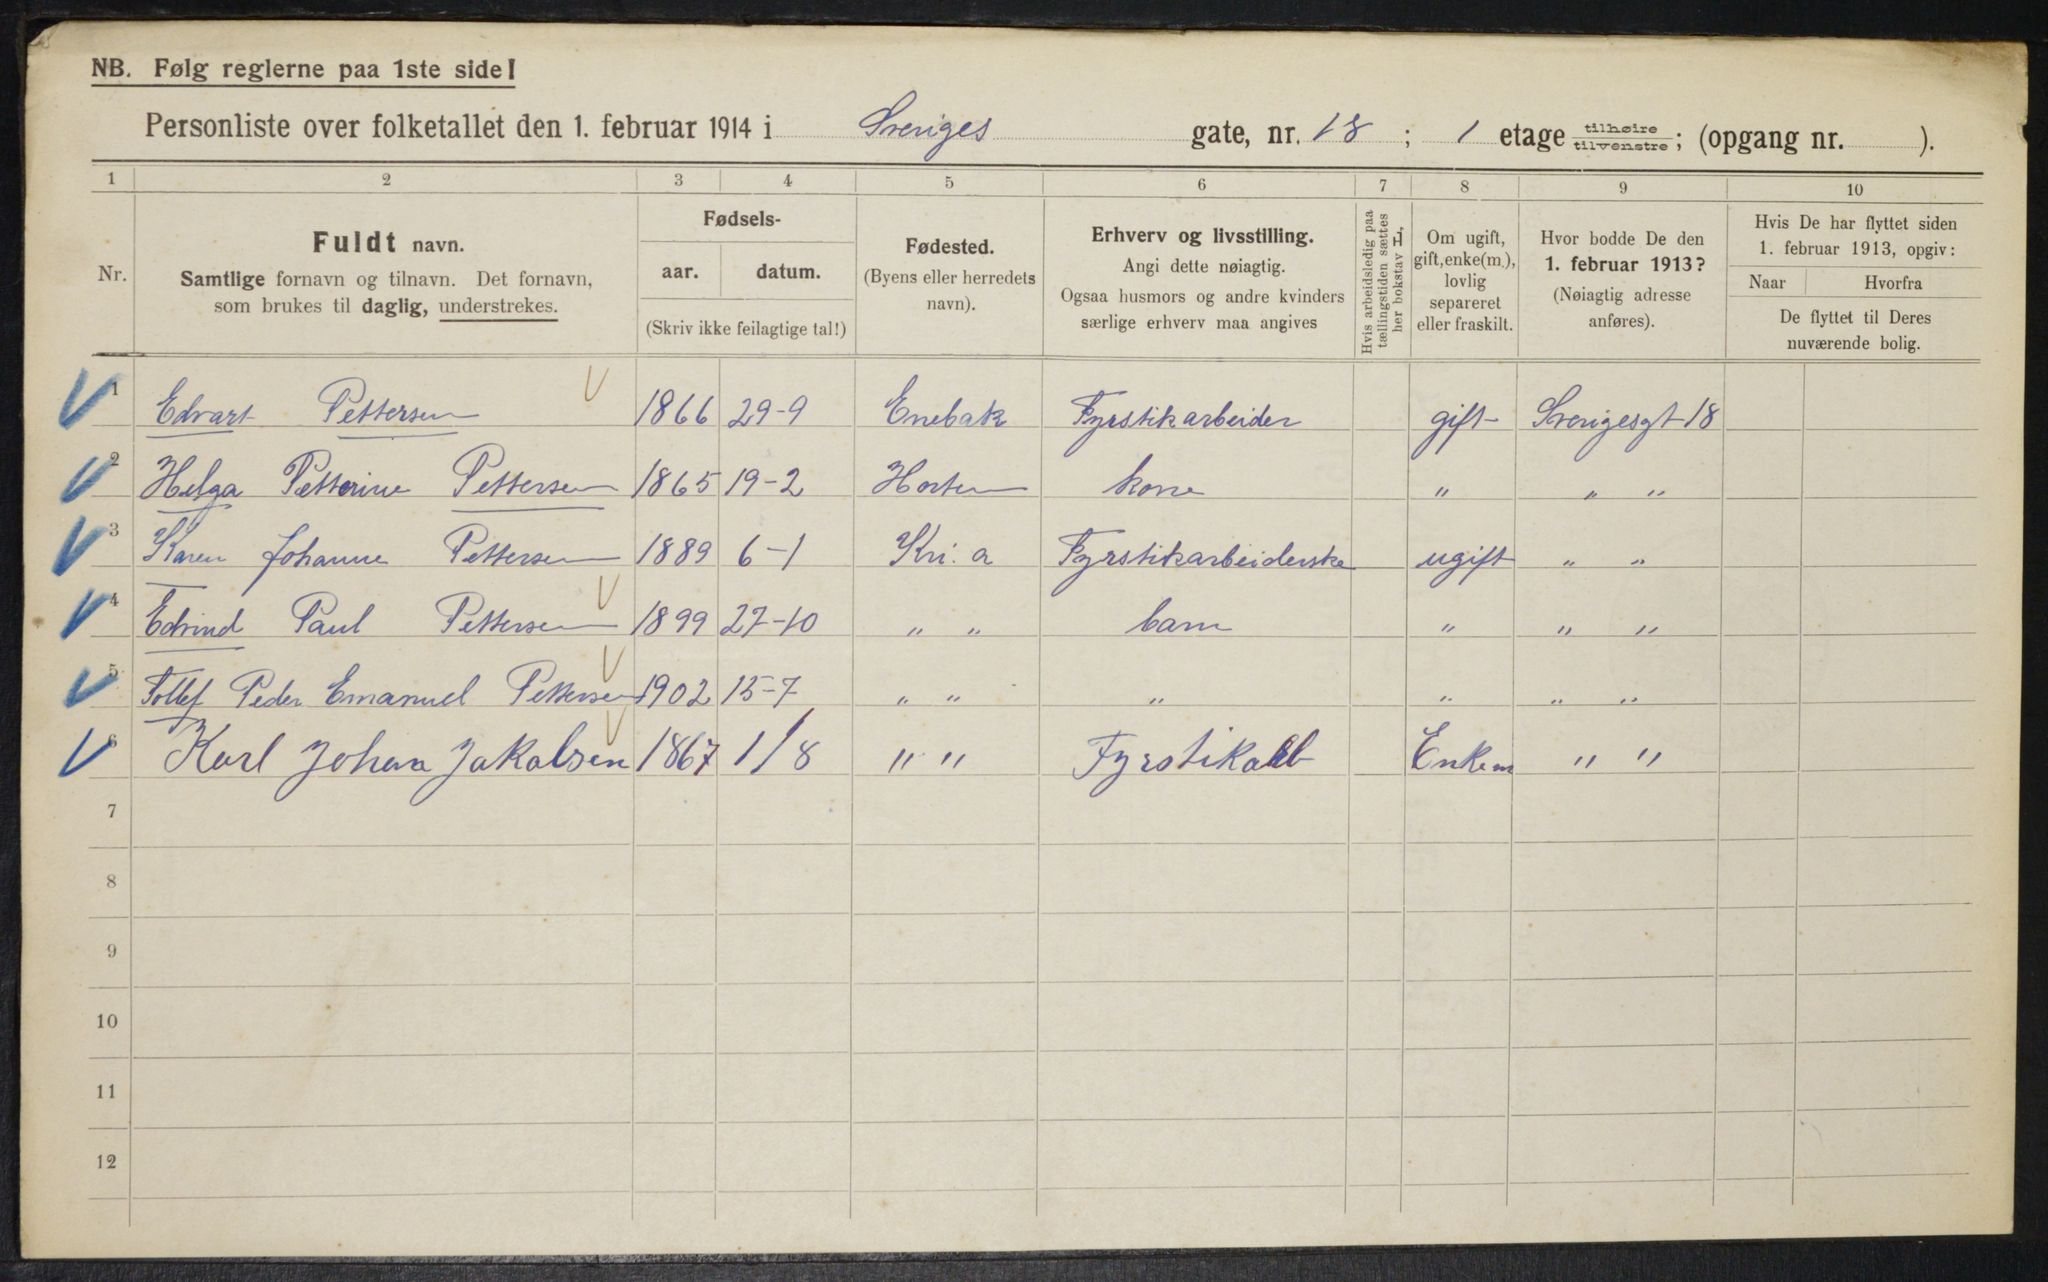 NB. Følg reglerne paa 1ste side!
Personliste over folketallet den 1. februar 1914 i Sveriges gate, nr. 18 ; 1 etage tilhøire tilvenstre; (opgang nr. ).
1 2 3 4 5 6 7 8 9 10
Nr.
Fuldt navn.
Samtlige fornavn og tilnavn. Det fornavn,
som brukes til daglig, understrekes.
Fødsels-
aar. datum.
(Skriv ikke feilagtige tal!)
Fødested.
(Byens eller herredets
navn).
Erhverv og livsstilling.
Angi dette nøiagtig.
Ogsaa husmors og andre kvinders
særlige erhverv maa angives
Hvis arbeidsledig paa
tællingstiden sættes
her bokstav H.
Om ugift,
gift, enke(m.),
lovlig
separeret
eller fraskilt.
Hvor bodde De den
1. februar 1913?
(Nøiagtig adresse
anføres).
Hvis De har flyttet siden
1. februar 1913, opgiv:
Naar Hvorfra
De flyttet til Deres
nuværende bolig.
1 Edvart Pettersen 1866 29-9 Enebak Fyrstikarbeider gift Sverigesgt 18
2 Helga Petterine Pettersen 1865 19-2 Horten kone " " "
3 Karen Johanne Pettersen 1889 6-1 Kri.a Fyrstikarbeiderske ugift " "
4 Edvind Paul Pettersen 1899 27-10 " " barn " " "
5 Tollef Peder Emanuel Pettersen 1902 15-7 " " " " " "
6 Karl Johan Jakobsen 1867 1/8 " " Fyrstikarb Enkem " "
7
8
9
10
11
12